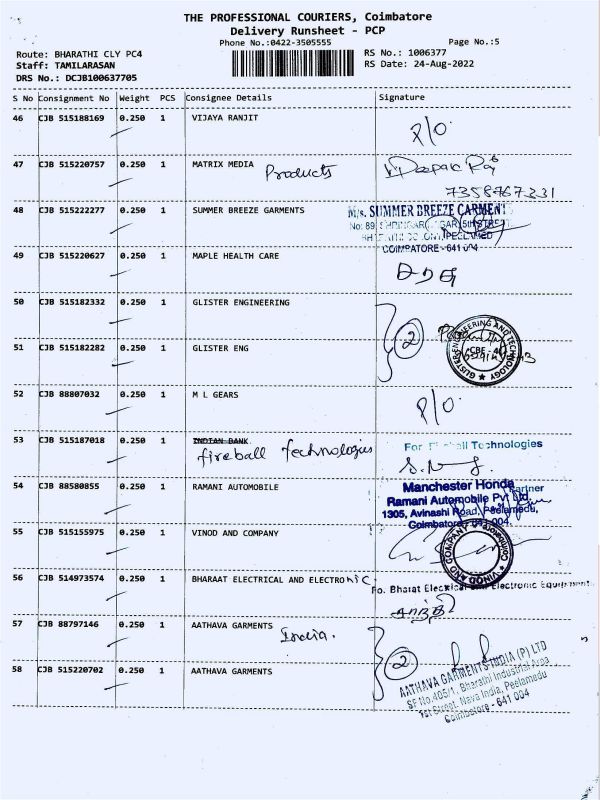 THE PROFESSIONAL COURIERS, Coimbatore
Delivery Runsheet - PCP
Phone No.:0422-3505555
Page No.:5
Route: BHARATHI CLY PC4
RS No.: 1006377
Staff: TAMILARASAN
RS Date: 24-Aug-2022
DRS No.: DCJB100637705
S No Consignment No Weight PCS Consignee Details Signature
46 CJB 515188169 0.250 1 VIJAYA RANJIT P/O
47 CJB 515220757 0.250 1 MATRIX MEDIA Products
7358767331
48 CJB 515222277 0.250 1 SUMMER BREEZE GARMENTS
M/s. SUMMER BREEZE GARMENT
COIMBATORE - 641 004
49 CJB 515220627 0.250 1 MAPLE HEALTH CARE
50 CJB 515182332 0.250 1 GLISTER ENGINEERING
2
GLISTER ENGINEERING AND TECHNOLOGY
CBE - 4
51 CJB 515182282 0.250 1 GLISTER ENG
52 CJB 88807032 0.250 1 M L GEARS P/O
53 CJB 515187018 0.250 1 INDIAN BANK
fireball Technologies
Technologies
Partner
54 CJB 88580855 0.250 1 RAMANI AUTOMOBILE
Manchester Honda
Ramani Automobile Pvt Ltd.
1305, Avinashi Road, Peelamedu,
Coimbatore - 641 004.
55 CJB 515155975 0.250 1 VINOD AND COMPANY
VINOD AND COMPANY
56 CJB 514973574 0.250 1 BHARAAT ELECTRICAL AND ELECTRONIC
Fo. Bharat Electrical and Electronic Equipment
57 CJB 88797146 0.250 1 AATHAVA GARMENTS India.
2
58 CJB 515220702 0.250 1 AATHAVA GARMENTS
AATHAVA GARMENTS INDIA (P) LTD
SF No.405/1, Bharathi Industrial Area
1st Street, Nava India, Peelamedu
Coimbatore - 641 004